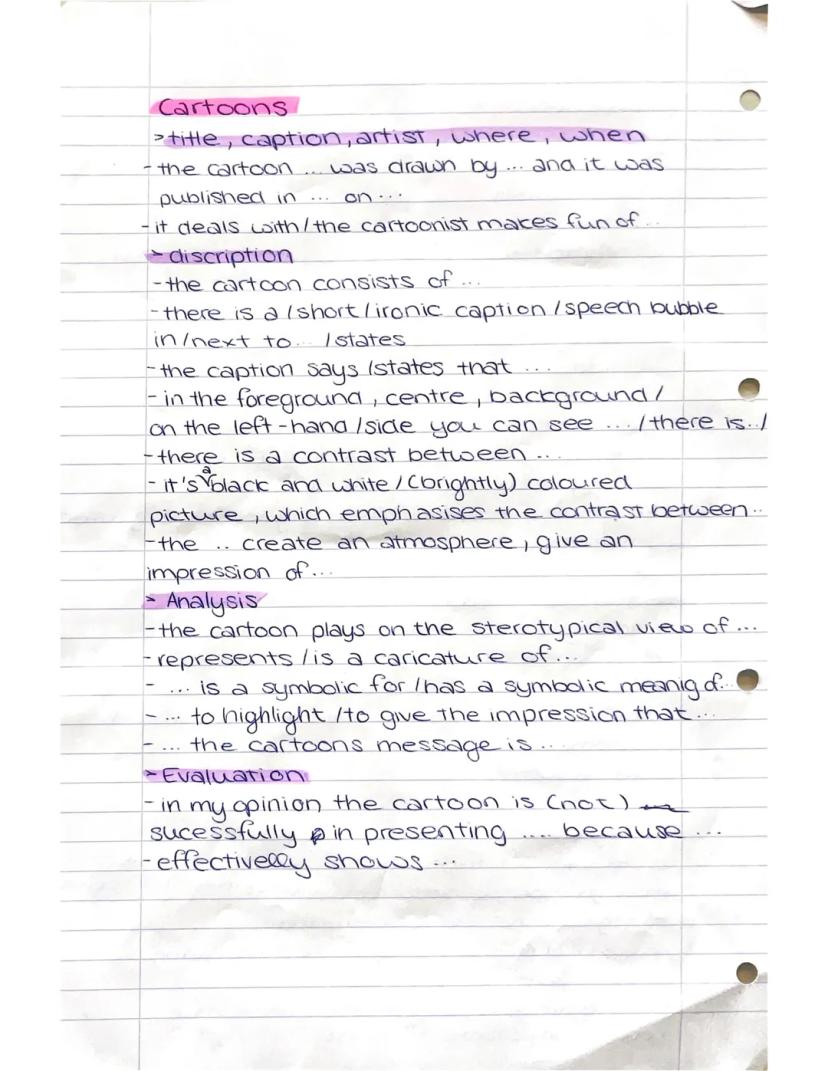 Cartoons
> title, caption, artist, where, when
- the cartoon ... was drawn by ... and it was
published in ... on ...
- it deals with / the cartoonist makes fun of ...
> discription
- the cartoon consists of ...
- there is a / short / ironic caption / speech bubble
in / next to ... / states
- the caption says / states that ...
- in the foreground, centre, background /
on the left-hand / side you can see ... / there is .. /
- there is a contrast between ...
- it's a black and white / (brightly) coloured
picture, which emphasises the contrast between ..
- the .. create an atmosphere, give an
impression of ...
> Analysis
- the cartoon plays on the sterotypical view of ...
- represents / is a caricature of ...
- ... is a symbolic for / has a symbolic meanig of ..
- ... to highlight / to give the impression that ...
- ... the cartoons message is ...
> Evaluation
- in my opinion the cartoon is (not)
sucessfully in presenting .... because ...
- effectivelly shows ...